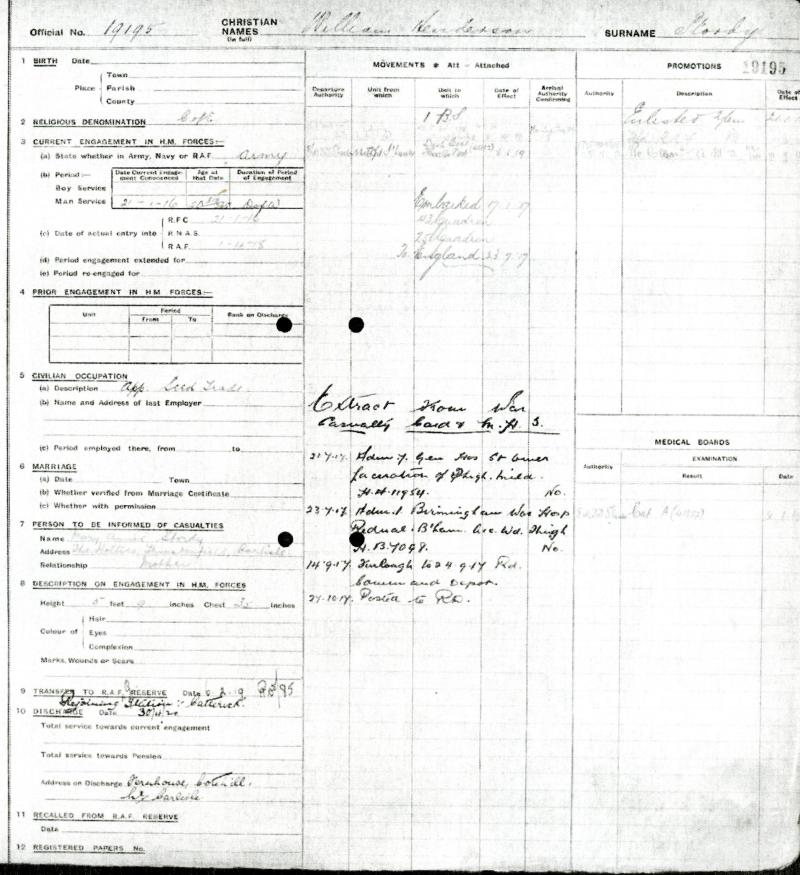 Official No. 19195 CHRISTIAN NAMES (in full) William Henderson SURNAME Stordy
1 BIRTH Date
Place - Town
Parish
County
2 RELIGIOUS DENOMINATION C of E
3 CURRENT ENGAGEMENT IN H.M. FORCES:-
(a) State whether in Army, Navy or R.A.F. Army
(b) Period :- Date Current Engagement Commenced Age at that Date Duration of Period of Engagement
Boy Service
Man Service 21-1-16 D of W
(c) Date of actual entry into R.F.C 21-1-16
R.N.A.S.
R.A.F. 1-4-18
(d) Period engagement extended for
(e) Period re-engaged for
4 PRIOR ENGAGEMENT IN H.M FORCES:-
Unit Period Rank on Discharge
From To
5 CIVILIAN OCCUPATION
(a) Description App. Seed Trade
(b) Name and Address of last Employer
(c) Period employed there, from to
6 MARRIAGE
(a) Date Town
(b) Whether verified from Marriage Certificate
(c) Whether with permission
7 PERSON TO BE INFORMED OF CASUALTIES
Name Mary Annie Stordy
Address The Hollies, Carlisle
Relationship Mother
8 DESCRIPTION ON ENGAGEMENT IN H.M. FORCES
Height 5 feet 9 inches Chest 35 inches
Colour of Hair
Eyes
Complexion
Marks, Wounds or Scars
9 TRANSFER TO R.A.F. RESERVE Date 6.2.19
Rejoining Station :- Catterick.
10 DISCHARGE Date 30/4/20
Total service towards current engagement
Total service towards Pension
Address on Discharge Fernhouse, Cotehill.
Nr Carlisle
11 RECALLED FROM R.A.F RESERVE
Date
12 REGISTERED PAPERS No.
MOVEMENTS * Att - Attached
Departure Authority Unit from which Unit to which Date of Effect Arrival Authority Confirming
1 B.S
Embarked 17.1.17
42 Squadron
25 Squadron
To England 23.7.17
Extract from War
Casualty Card & M.H. 3.
21.7.17. Adm. 7. Gen Hos St Omer
laceration of thigh. mild.
H.A. 11954. No.
23.7.17 Adm. 1 Birmingham War Hosp
Rednal. B'ham. Acc. Wd. Thigh
H.B. 7098. No.
14.9.17. Furlough to 24.9.17 Rd.
Command Depot.
27.10.17. Posted to R.D.
PROMOTIONS 19195
Authority Description Date of Effect
Enlisted 2/am
MEDICAL BOARDS
Authority EXAMINATION
Result Date
Cat A